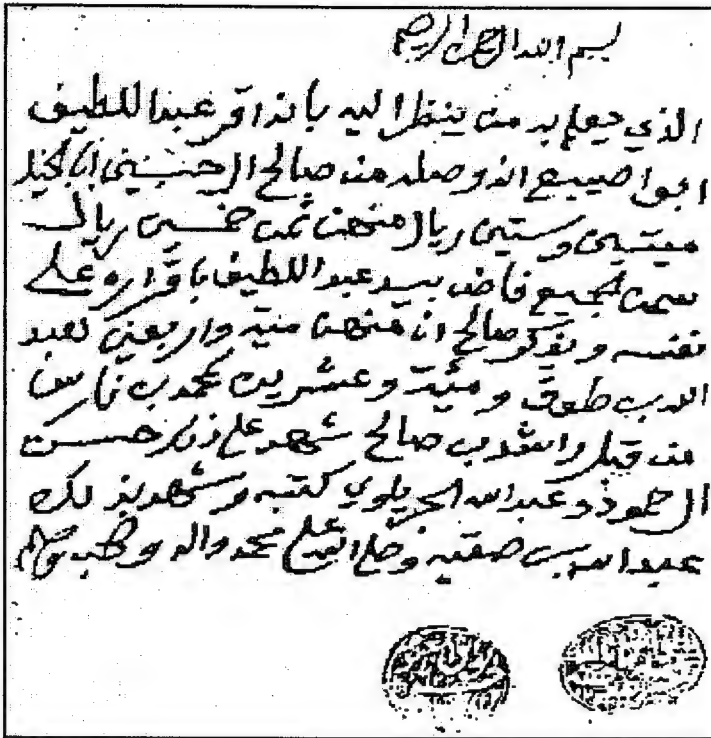 بسم الله الرحمن الرحيم
الذي يعلم به من ينظر اليه بانه اقر عبد اللطيف
ابوا صيبع انه وصله من صالح ال حنيني
ميتين وستين ريال منهن ثمن خمسين ريال
الجميع قاض بيد عبد اللطيف باقراره على
نفسه ويذكر صالح ان منهن مية واربعين لعبد
الله بن طوق ومئية وعشرين لمحمد بن فارس
من قبل راشد بن صالح شهد على ذلك حسن
ال حمود وعبد الله الجريلوي كتبه وشهد بذلك
عبد الله بن صقيه وصلى الله على محمد واله وصحبه وسلم